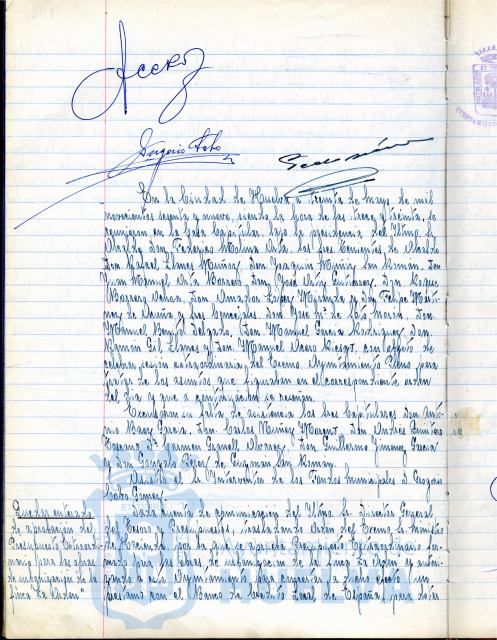 Acero
Gregorio Cabo
En la Ciudad de Huelva a treinta de mayo de mil
novecientos sesenta y nueve, siendo la hora de las trece y treinta, se
reunieron en la Casa Capitular, bajo la presidencia del Iltmo. Sr.
Alcalde Don Federico Molina Orta, los Sres. Tenientes de Alcalde
Don Rafael Llanes Muñoz, Don Joaquin Muñiz San Roman, Don
Juan Manuel Orta Don José Ortiz Gutierrez, Don Roque
Barrera Don Amador Lopez y Don Felipe Marti-
nez de Acuña y Sres. Concejales Don José Mª de Soto Marin, Don
Manuel Bengel Delgado, Don Manuel Garcia Rodriguez, Don
Ramón Gil Llanes y Don Manuel Acero Riesgo, con objeto de
celebrar sesión extraordinaria del Excmo. Ayuntamiento Pleno para
tratar de los asuntos que figuraban en el correspondiente orden
del día y que a continuación se reseñan.
Excusaron su falta de asistencia los Sres. Capitulares Don Anto-
nio Baez Garcia, Don Carlos Muñoz Don Andrés
Bascano, Dª Carmen Alvarez, Don Guillermo Jimenez Garcia
y Don Gonzalo Perez de Guzman San Roman.
Asistió el Sr. Interventor de los Fondos Municipales D. Gregorio
Cabo Gomez.
Quedar enterado
de aprobación del
Presupuesto Extraordi-
nario para las obras
de urbanización de la
finca "La Orden"
Dada cuenta de comunicación del Iltmo. Sr. Director General
del Tesoro y Presupuestos, trasladando Orden del Excmo. Sr. Ministro
de Hacienda, por la que se aprueba Presupuesto Extraordinario for-
mado para las obras de urbanización de la finca La Orden y autori-
zando a este Ayuntamiento para concertar a dicho efecto un
préstamo con el Banco de Crédito Local de España, para dotar
HUELVA